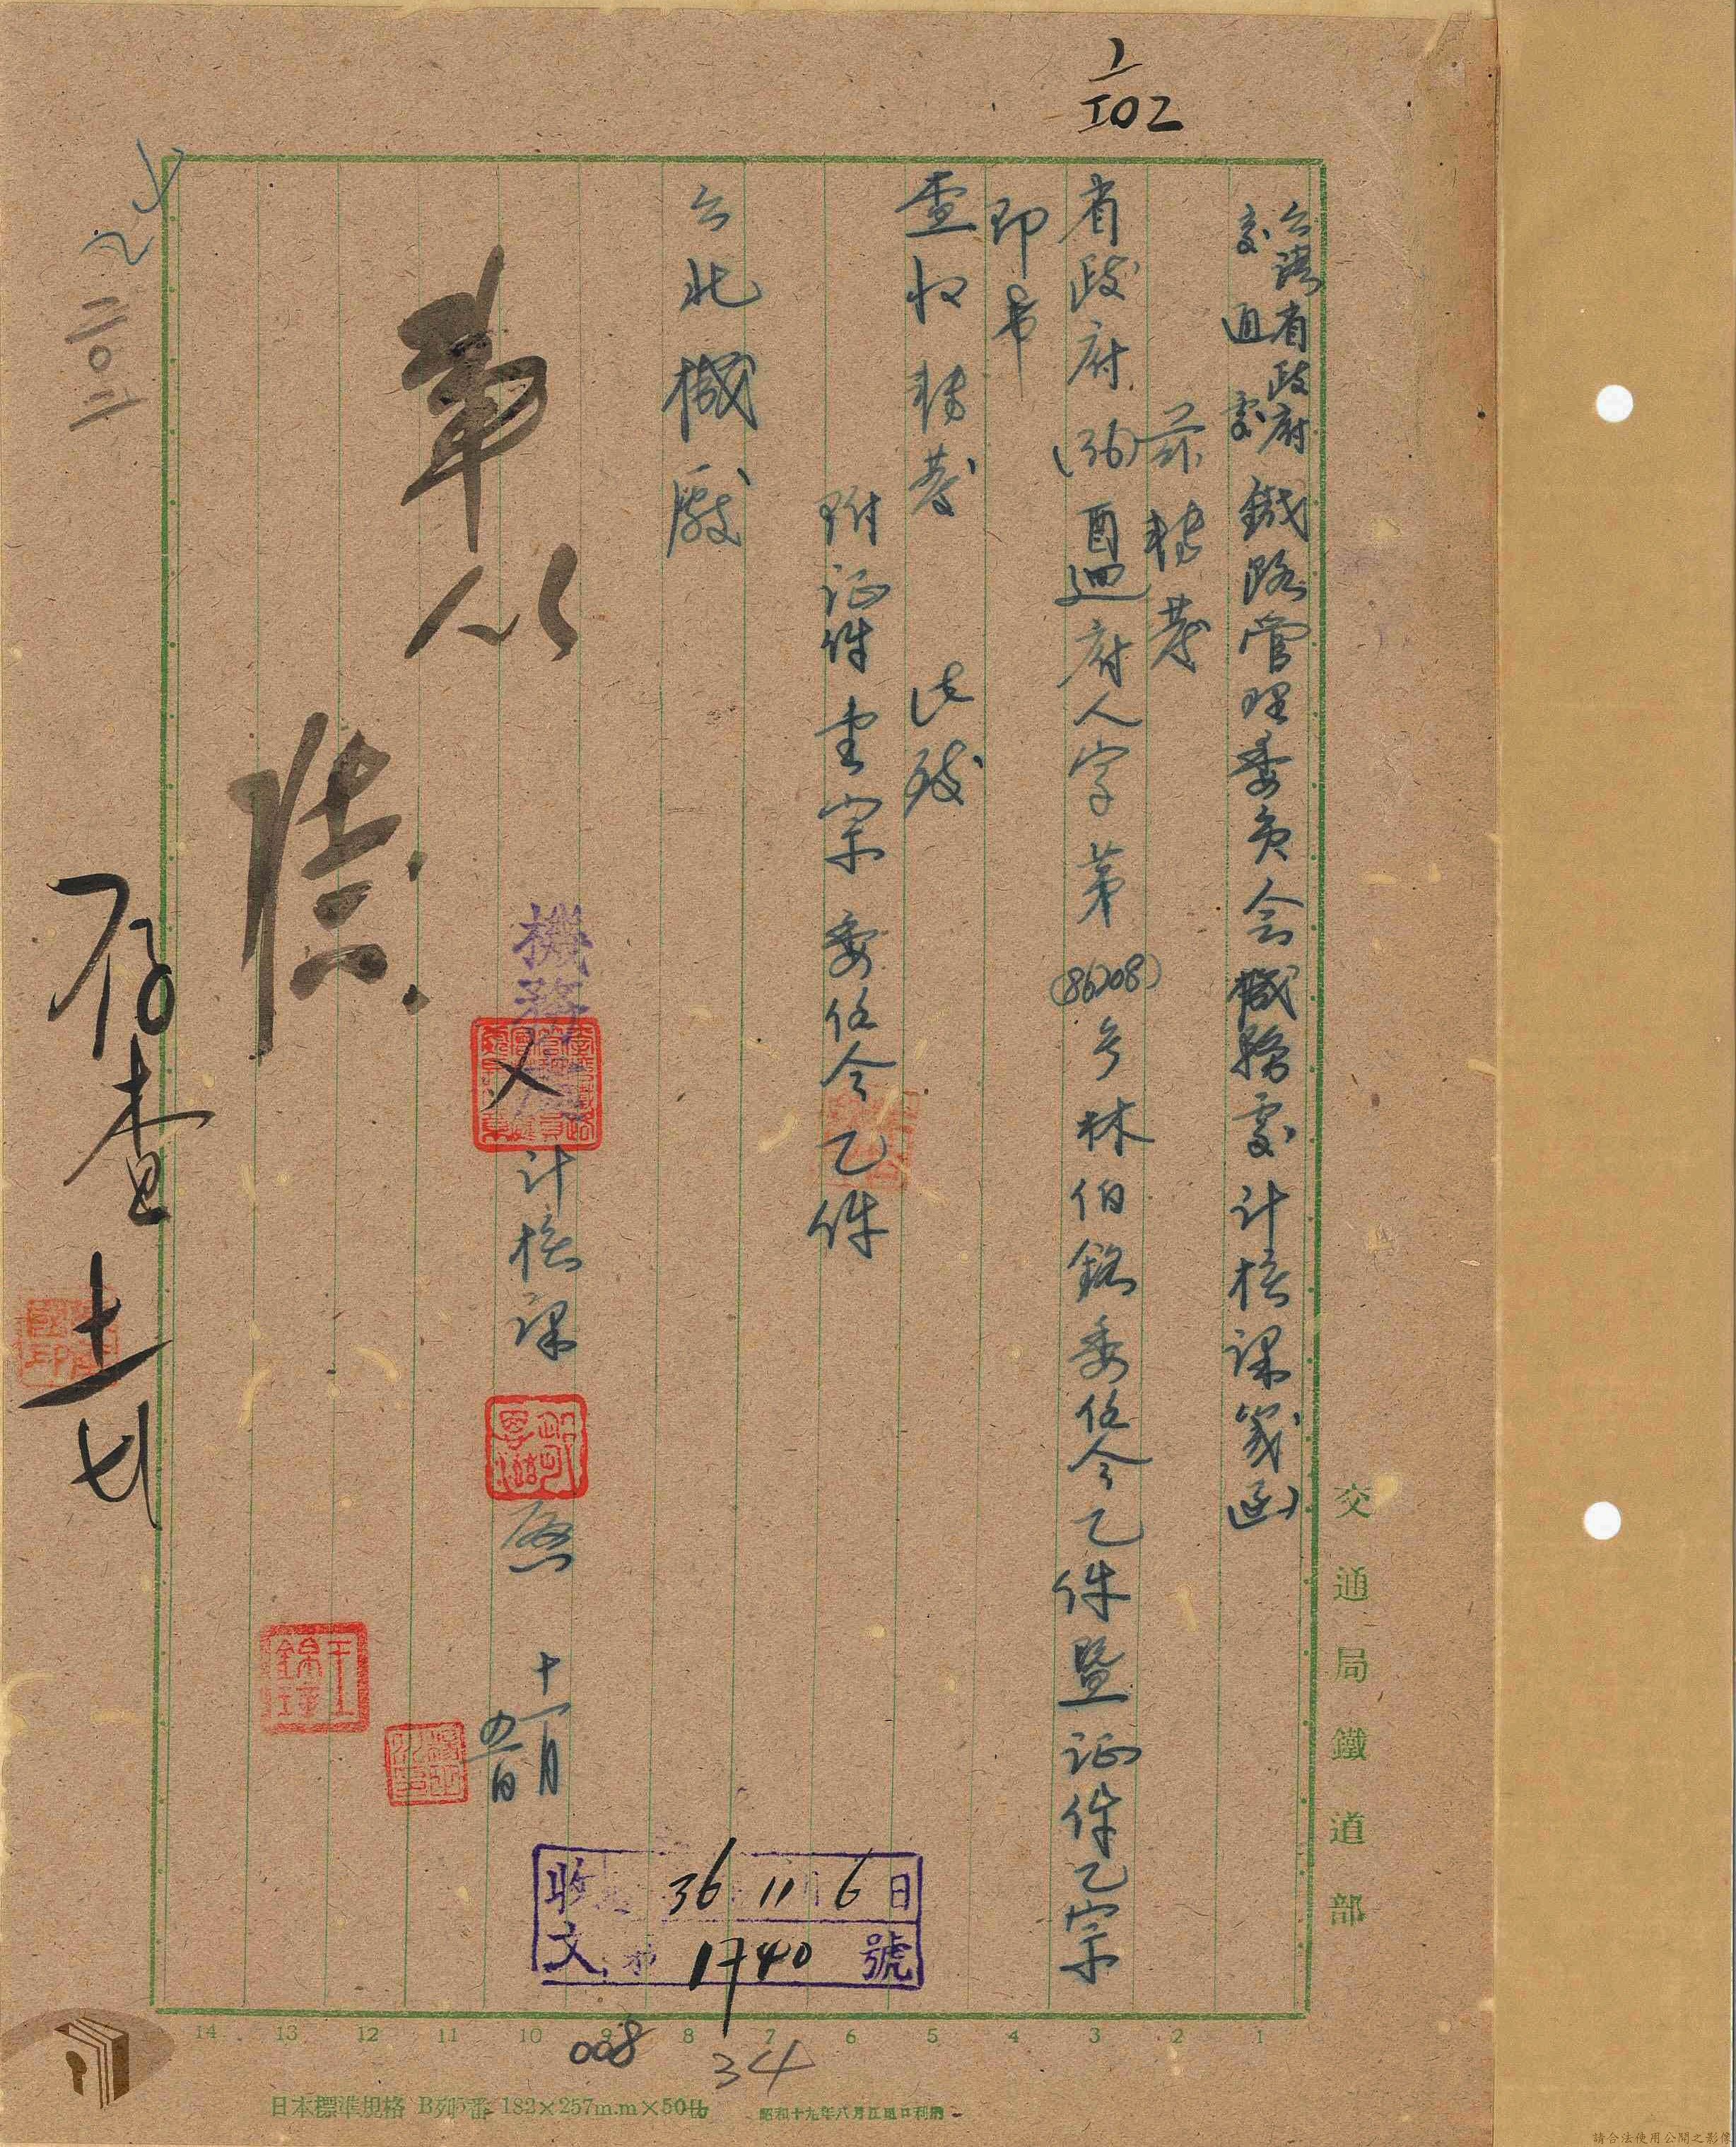 1/I02
台灣省政府交通處鐵路管理委員会機務處計核課箋函
茲轉發
省政府(36)酉迴府人字第(86208)号林伯銘委任令乙件暨证件乙宗
即希
查收轉發 此致
附证件壹宗 委任令乙件
台北機廠
機務
計核課 啟
十一月五日
存查
十一 七
收文 36 11 6日
第1740號
交通局鐵道部
14 13 12 11 10 9 8 7 6 5 4 3 2 1
008
34
日本標準規格 B列5番 182×257m.m×50
請合法使用公開之影像